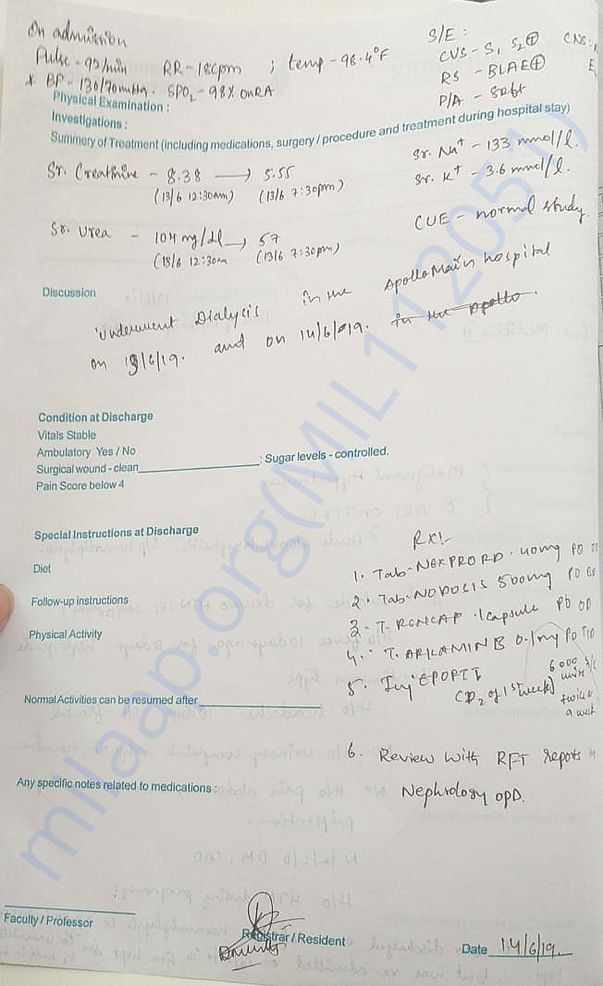 On admission
Pulse - 90/min RR - 18cpm ; temp - 98.4°F
* BP - 130/70mmHg. SPO2 - 98% on RA
S/E :
CVS - S1 S2 ⊕ CNS :
RS - BLAE⊕
P/A - soft
Physical Examination :
Investigations :
Summary of Treatment (including medications, surgery / procedure and treatment during hospital stay)
Sr. Creatinine - 8.38 → 5.55
(13/6 12:30am) (13/6 7:30pm)
Sr. Na+ - 133 mmol/l.
Sr. K+ - 3.6 mmol/l.
Sr. Urea - 104 mg/dl → 57
(13/6 12:30am (13/6 7:30pm)
CUE - normal study.
Discussion
Underwent Dialysis in the Apollo Main hospital
on 13/6/19. and on 14/6/19. in the Apollo.
Condition at Discharge
Vitals Stable
Ambulatory Yes / No
Surgical wound - clean : Sugar levels - controlled.
Pain Score below 4
Special Instructions at Discharge
Rx!-
Diet
1. Tab. NEXPRO RD . 40mg PO OD
Follow-up instructions
2. Tab. NODOSIS 500mg PO
3. T. RENCAP . 1 capsule PO OD
Physical Activity
4. T. ARKAMIN 0.1mg PO TID
5. Inj EPOFIT 6000 units S/C
(D2 of 1st week) twice a week
Normal Activities can be resumed after
6. Review with RFT reports in
Nephrology OPD.
Any specific notes related to medications :
Faculty / Professor
Registrar / Resident
Date 14/6/19.
milaap.org(MIL112051)